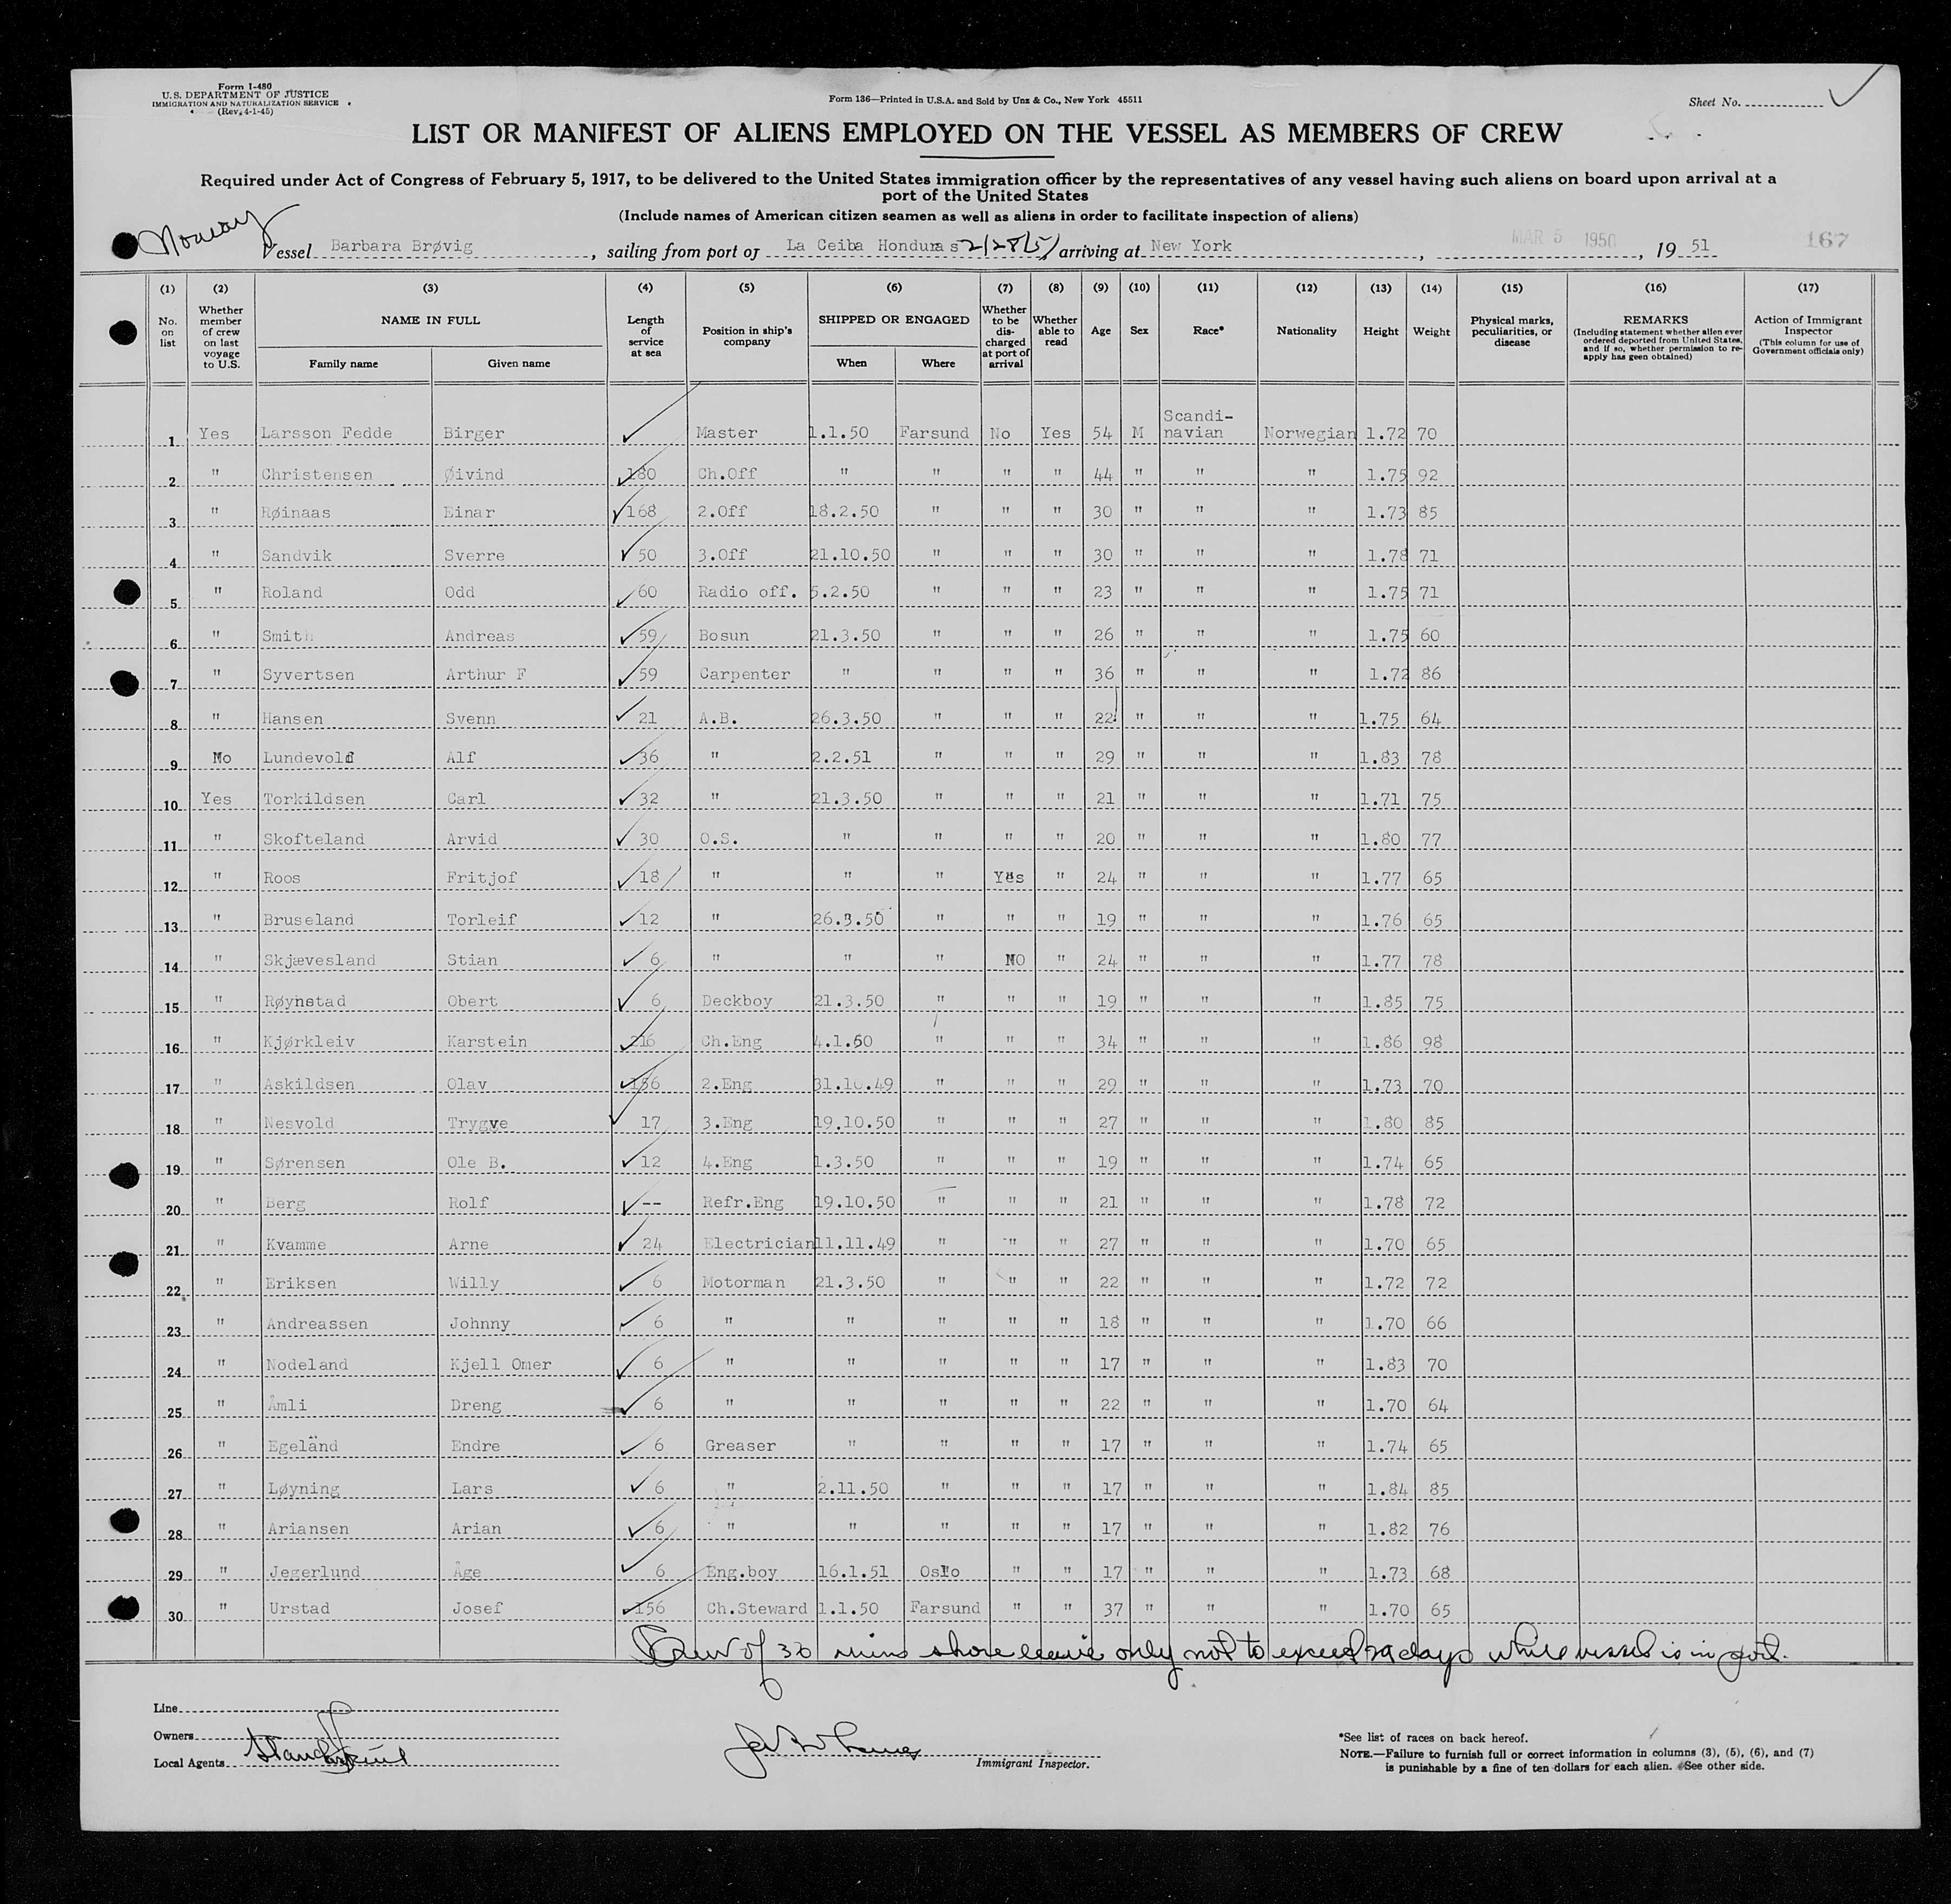 Form I-480
U.S. DEPARTMENT OF JUSTICE
IMMIGRATION AND NATURALIZATION SERVICE
(Rev. 4-1-45)
Form 136—Printed in U.S.A. and Sold by Unz & Co., New York 45511
Sheet No.
LIST OR MANIFEST OF ALIENS EMPLOYED ON THE VESSEL AS MEMBERS OF CREW
Required under Act of Congress of February 5, 1917, to be delivered to the United States immigration officer by the representatives of any vessel having such aliens on board upon arrival at a
port of the United States
(Include names of American citizen seamen as well as aliens in order to facilitate inspection of aliens)
Norway
Vessel Barbara Brøvig, sailing from port of La Ceiba Honduras 2/28/51 arriving at New York, MAR 5 1950, 19 51 167
(1) (2) (3) (4) (5) (6) (7) (8) (9) (10) (11) (12) (13) (14) (15) (16) (17)
No. on list Whether member of crew on last voyage to U.S. NAME IN FULL Family name Given name Length of service at sea Position in ship's company SHIPPED OR ENGAGED When Where Whether to be discharged at port of arrival Whether able to read Age Sex Race* Nationality Height Weight Physical marks, peculiarities, or disease REMARKS (Including statement whether alien ever ordered deported from United States, and if so, whether permission to re-apply has geen obtained) Action of Immigrant Inspector (This column for use of Government officials only)
1 Yes Larsson Fedde Birger Master 1.1.50 Farsund No Yes 54 M Scandi-navian Norwegian 1.72 70
2 " Christensen Øivind 180 Ch.Off " " " " 44 " " " 1.75 92
3 " Røinaas Einar 168 2.Off 18.2.50 " " " 30 " " " 1.73 85
4 " Sandvik Sverre 50 3.Off 21.10.50 " " " 30 " " " 1.78 71
5 " Roland Odd 60 Radio off. 5.2.50 " " " 23 " " " 1.75 71
6 " Smith Andreas 59 Bosun 21.3.50 " " " 26 " " " 1.75 60
7 " Syvertsen Arthur F 59 Carpenter " " " " 36 " " " 1.72 86
8 " Hansen Svenn 21 A.B. 26.3.50 " " " 22 " " " 1.75 64
9 No Lundevold Alf 36 " 2.2.51 " " " 29 " " " 1.83 78
10 Yes Torkildsen Carl 32 " 21.3.50 " " " 21 " " " 1.71 75
11 " Skofteland Arvid 30 O.S. " " " " 20 " " " 1.80 77
12 " Roos Fritjof 18 " " " Yes " 24 " " " 1.77 65
13 " Bruseland Torleif 12 " 26.3.50 " " " 19 " " " 1.76 65
14 " Skjævesland Stian 6 " " " NO " 24 " " " 1.77 78
15 " Røynstad Obert 6 Deckboy 21.3.50 " " " 19 " " " 1.85 75
16 " Kjørkleiv Karstein 216 Ch.Eng 4.1.50 " " " 34 " " " 1.86 98
17 " Askildsen Olav 156 2.Eng 31.10.49 " " " 29 " " " 1.73 70
18 " Nesvold Trygve 17 3.Eng 19.10.50 " " " 27 " " " 1.80 85
19 " Sørensen Ole B. 12 4.Eng 1.3.50 " " " 19 " " " 1.74 65
20 " Berg Rolf -- Refr.Eng 19.10.50 " " " 21 " " " 1.78 72
21 " Kvamme Arne 24 Electrician 11.11.49 " " " 27 " " " 1.70 65
22 " Eriksen Willy 6 Motorman 21.3.50 " " " 22 " " " 1.72 72
23 " Andreassen Johnny 6 " " " " " 18 " " " 1.70 66
24 " Nodeland Kjell Omer 6 " " " " " 17 " " " 1.83 70
25 " Åmli Dreng 6 " " " " " 22 " " " 1.70 64
26 " Egeland Endre 6 Greaser " " " " 17 " " " 1.74 65
27 " Løyning Lars 6 " 2.11.50 " " " 17 " " " 1.84 85
28 " Ariansen Arian 6 " " " " " 17 " " " 1.82 76
29 " Jegerlund Åge 6 Eng.boy 16.1.51 Oslo " " 17 " " " 1.73 68
30 " Urstad Josef 156 Ch.Steward 1.1.50 Farsund " " 37 " " " 1.70 65
Crew of 30 shore leave only not to exceed 29 days while vessel is in port.
Line
Owners
Local Agents
Immigrant Inspector.
*See list of races on back hereof.
NOTE.—Failure to furnish full or correct information in columns (3), (5), (6), and (7)
is punishable by a fine of ten dollars for each alien. See other side.